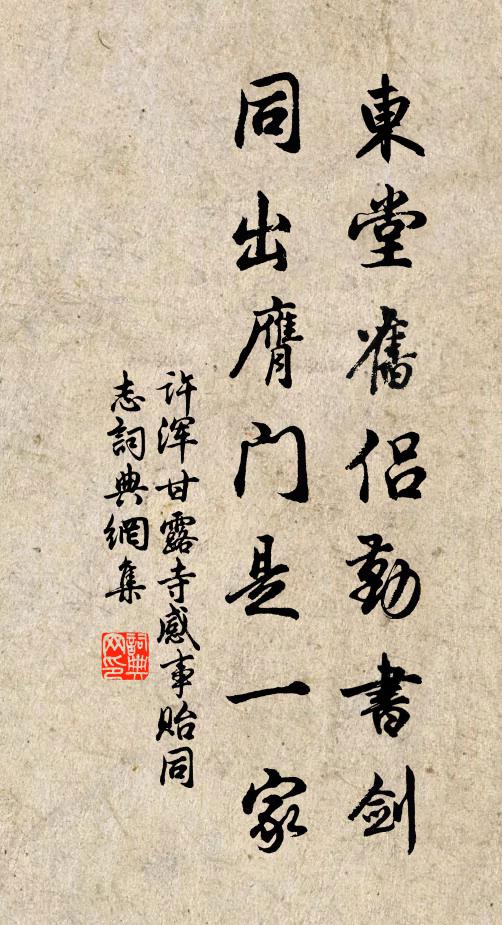 東堂舊侣勤書劍
同出膺門是一家
许浑甘露寺感事貽同
志詞典網集
詞典网印